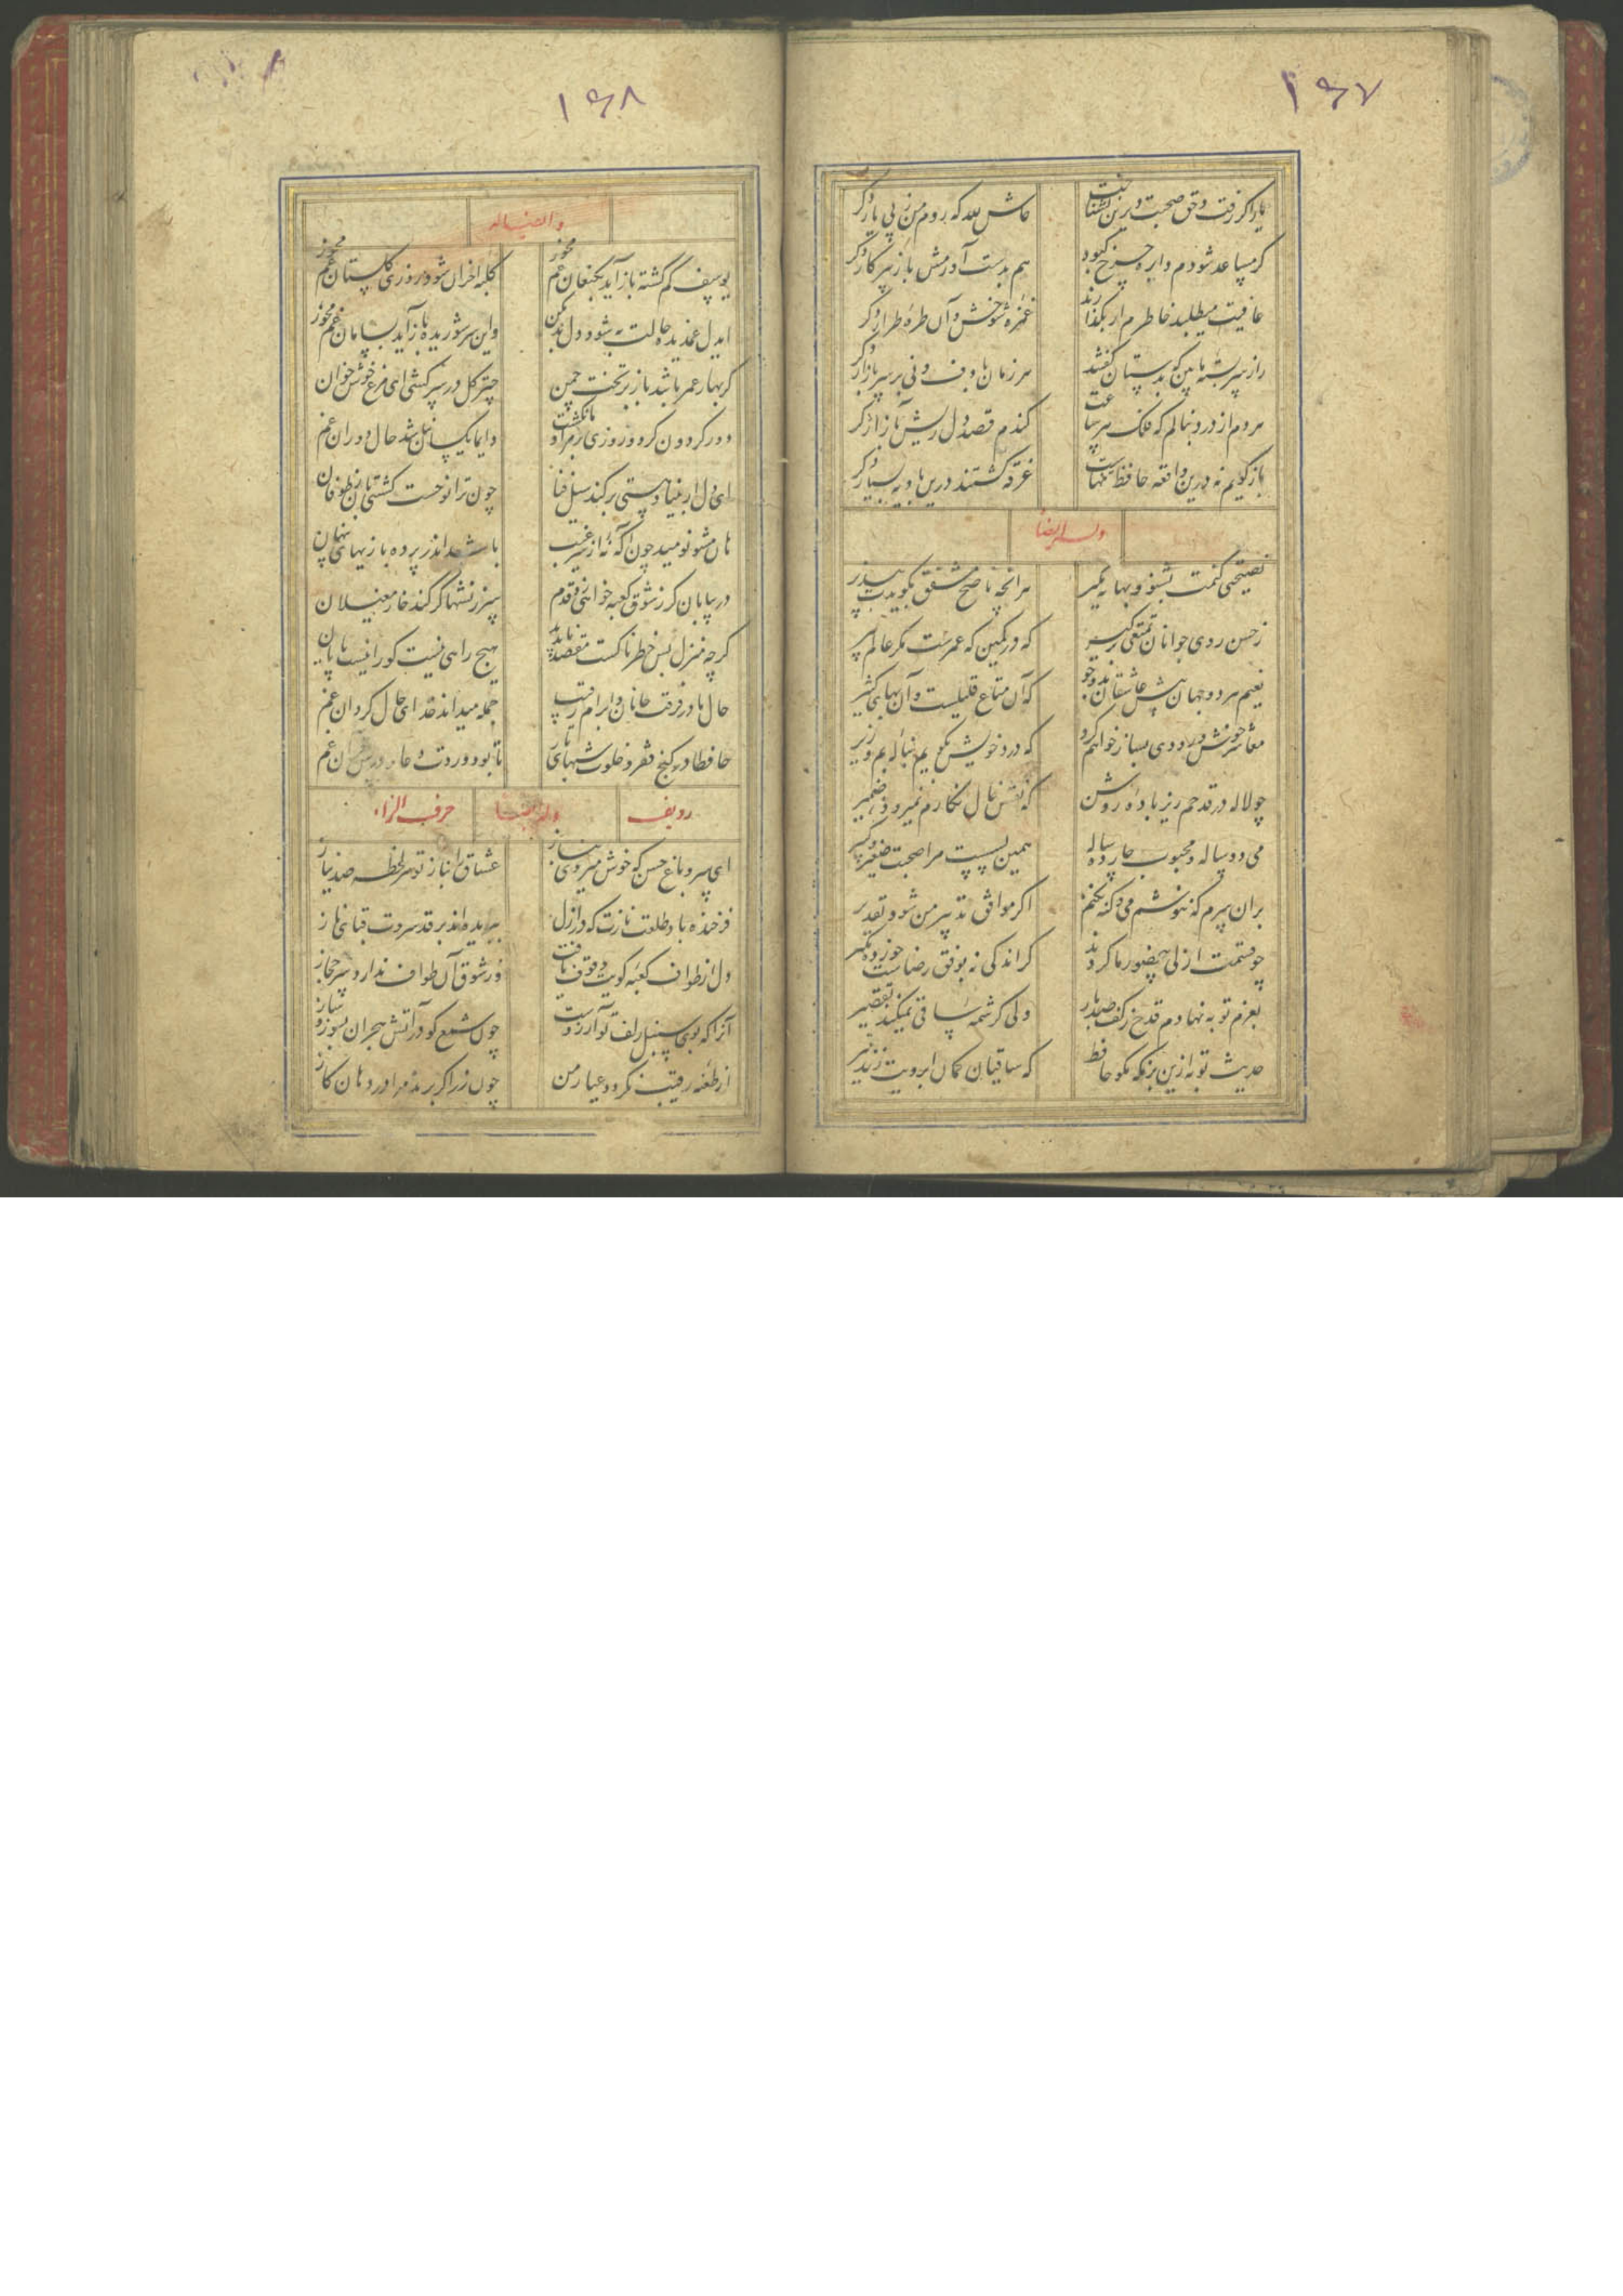 ۱۶۷
یار اگر رفت و حق صحبت دیرین نشناخت
حاش لله که روم من ز پی یار دگر
گر مساعد شودم دایره چرخ کبود
هم بدست آورمش باز بپرکار دگر
عافیت میطلبد خاطرم ار بگذارند
غمزه شوخش و آن طره طرار دگر
راز سربسته ما بین که بدستان گفتند
هر زمان با دف و نی بر سر بازار دگر
هر دم از درد بنالم که فلک هر ساعت
کندم قصد دل ریش بآزار دگر
باز گویم نه درین واقعه حافظ تنهاست
غرقه گشتند درین بادیه بسیار دگر
وله ایضاً
نصیحتی کنمت بشنو و بهانه مگیر
هر آنچه ناصح مشفق بگویدت بپذیر
ز حسن روی جوانان تمتعی برگیر
که در کمین که عمرست مکر عالم پیر
نعیم هر دو جهان پیش عاشقان بدو جو
که آن متاع قلیلست و آن بهای کثیر
معاشر خوش و رودی بساز خواهم کرد
که درد خویش بگویم بناله بم و زیر
چو لاله در قدحم ریز باده روشن
که نقش خال نگارم نمیرود ز ضمیر
می دو ساله و محبوب چارده ساله
همین بسست مرا صحبت صغیر و کبیر
بران سرم که ننوشم می و گنه نکنم
اگر موافق تدبیر من شود تقدیر
چو قسمت ازلی بیحضور ما کردند
گر اندکی نه بوفق رضاست خورده مگیر
بعزم توبه نهادم قدح ز کف صدبار
ولی کرشمه ساقی نمیکند تقصیر
حدیث توبه ازین بزمگه مگو حافظ
که ساقیان کمان ابرویت زنند تیر
۱۶۸
یوسف گم گشته باز آید بکنعان غم مخور
کلبه احزان شود روزی گلستان غم مخور
ایدل غمدیده حالت به شود دل بد مکن
واین سر شوریده باز آید بسامان غم مخور
گر بهار عمر باشد باز بر تخت چمن
چتر گل در سر کشی ای مرغ خوش خوان
دور گردون گر دو روزی بر مراد ما نگشت
دایما یکسان نباشد حال دوران غم
ای دل ار بنیاد هستی بر کند سیل فنا
چون ترا نوحست کشتیبان ز طوفان
هان مشو نومید چون آگه نه از سر غیب
باشد اندر پرده بازیهای پنهان
در بیابان گر ز شوق کعبه خواهی زد قدم
سرزنشها گر کند خار مغیلان
گرچه منزل بس خطرناکست مقصد ناپدید
هیچ راهی نیست کو را نیست پایان
حال ما در فرقت جانان و ابرام رقیب
جمله میداند خدای حال گردان غم
حافظا در کنج فقر و خلوت شبهای تار
تا بود وردت دعا و درس قرآن غم
ردیف حرف الزاء
ای سرو باغ حسن که خوش میروی بناز
عشاق را بناز تو هر لحظه صد نیاز
فرخنده باد طلعت نازت که در ازل
ببریده اند بر قد سروت قبای ناز
دل از طواف کعبه کویت وقوف یافت
ور شوق آن طواف ندارد سر حجاز
آنرا که بوی سنبل زلف تو آرزوست
چون شمع گو در آتش هجران بسوز و ساز
از طعنه رقیب نگردد عیار من
چون زر اگر برند مرا در دهان گاز